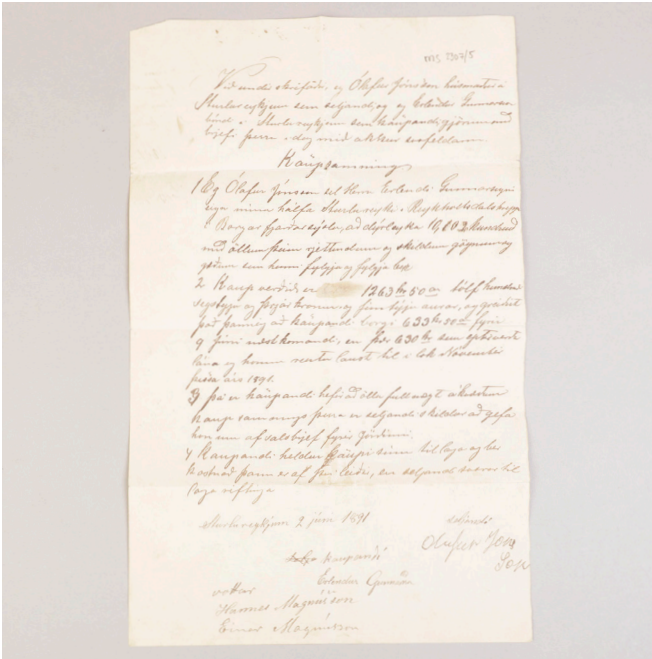 MS 3307/5
Við undirskrifaðir, eg Ólafur Jónsson húsmaður á
Sturlareykjum sem seljandi, og eg Erlendur Gunnars-
Sturlareykjum sem kaupandi, gjörum með
bréfi þessu í dag með okkur svofeldan
Kaupsamning
1 Eg Ólafur Jónsson sel Herra Erlendi Gunnarssyni
eign mína hálfa Sturlareyki í Reykholtsdalshrepp
í Borgarfjarðarsýslu, að dýrleika 10,602 hundruð
með öllum þeim rjettindum og skyldum gögnum og
gæðum sem henni fylgja og fylgja ber
2 Kaupverðið er 1263 kr 50 au tólf hundruð
sextygir og þrjár krónur og fimtygir aurar, og greiðist
það þannig að kaupandi borgi 633 kr 50 au fyrir
9 Júní næstkomandi, en þær 630 kr sem eptir
lána eg honum rentu laust til í lok November
þetta ár 1891.
3 Þá er kaupandi hefir að öllu fullnægt
kaupsamnings þessa er seljandi skyldur að gefa
honum afsalsbrjef fyrir jörðinni.
4 Kaupandi heldur kaupi sínu til laga og ber
kostnað þann er af því leiðir, en seljandi svarar til
laga
Sturlureykjum 2 júní 1891
seljandi
Olafur Jons
Son
Kaupandi
Erlendur
vottar
Hannes Magnússon
Einar Magnússon